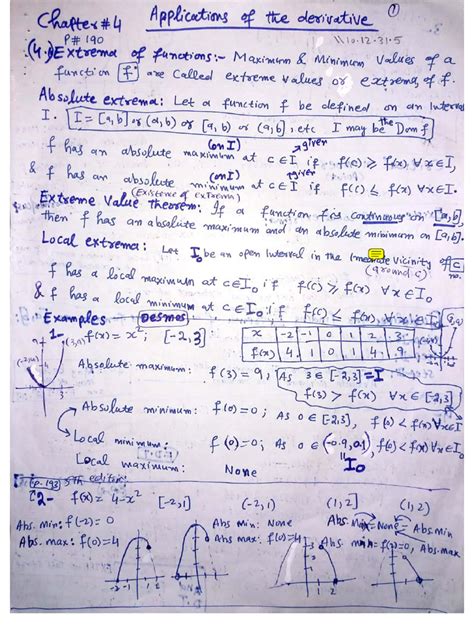 Chapter #4 Applications of the derivative ①
P# 190
(4.1) Extrema of functions:- Maximum & Minimum values of a
function f are called extreme values or extrema of f.
Absolute extrema: Let a function f be defined on an Interval
I. I = [a,b] or (a,b) or [a,b) or (a,b], etc I may be the Dom f
f has an absolute maximum (on I) at c ∈ I if f(c) ≥ f(x) ∀ x ∈ I,
given
& f has an absolute minimum (on I) at c ∈ I if f(c) ≤ f(x) ∀ x ∈ I.
given
(Existence of extrema)
Extreme Value theorem: If a function f is continuous on [a,b],
then f has an absolute maximum and an absolute minimum on [a,b].
Local extrema: Let I₀ be an open Interval in the vicinity of c
(around c) no.
f has a local maximum at c ∈ I₀ if f(c) ≥ f(x) ∀ x ∈ I₀
& f has a local minimum at c ∈ I₀ if f(c) ≤ f(x) ∀ x ∈ I₀
Examples Desmos
1- f(x) = x²; [-2,3]
x -2 -1 0 1 2 3
f(x) 4 1 0 1 4 9
Absolute maximum: f(3) = 9; As 3 ∈ [-2,3] = I
f(3) > f(x) ∀ x ∈ [-2,3]
Absolute minimum: f(0) = 0; As 0 ∈ [-2,3], f(0) < f(x) ∀ x ∈ I
Local minimum: f(0) = 0; As 0 ∈ (-0.9,0.1) f(0) < f(x) ∀ x ∈ I₀
I₀
Local maximum: None
P. 193 editor
2- f(x) = 4-x² [-2,1] (-2,1) (1,2] (1,2)
Abs. min: f(-2) = 0 Abs Min: None Abs. Max = None Abs min
Abs. max: f(0) = 4 Abs max: f(0) = 4 Abs. min = f(2) = 0, Abs. max
-2 -1 1 2
1 2